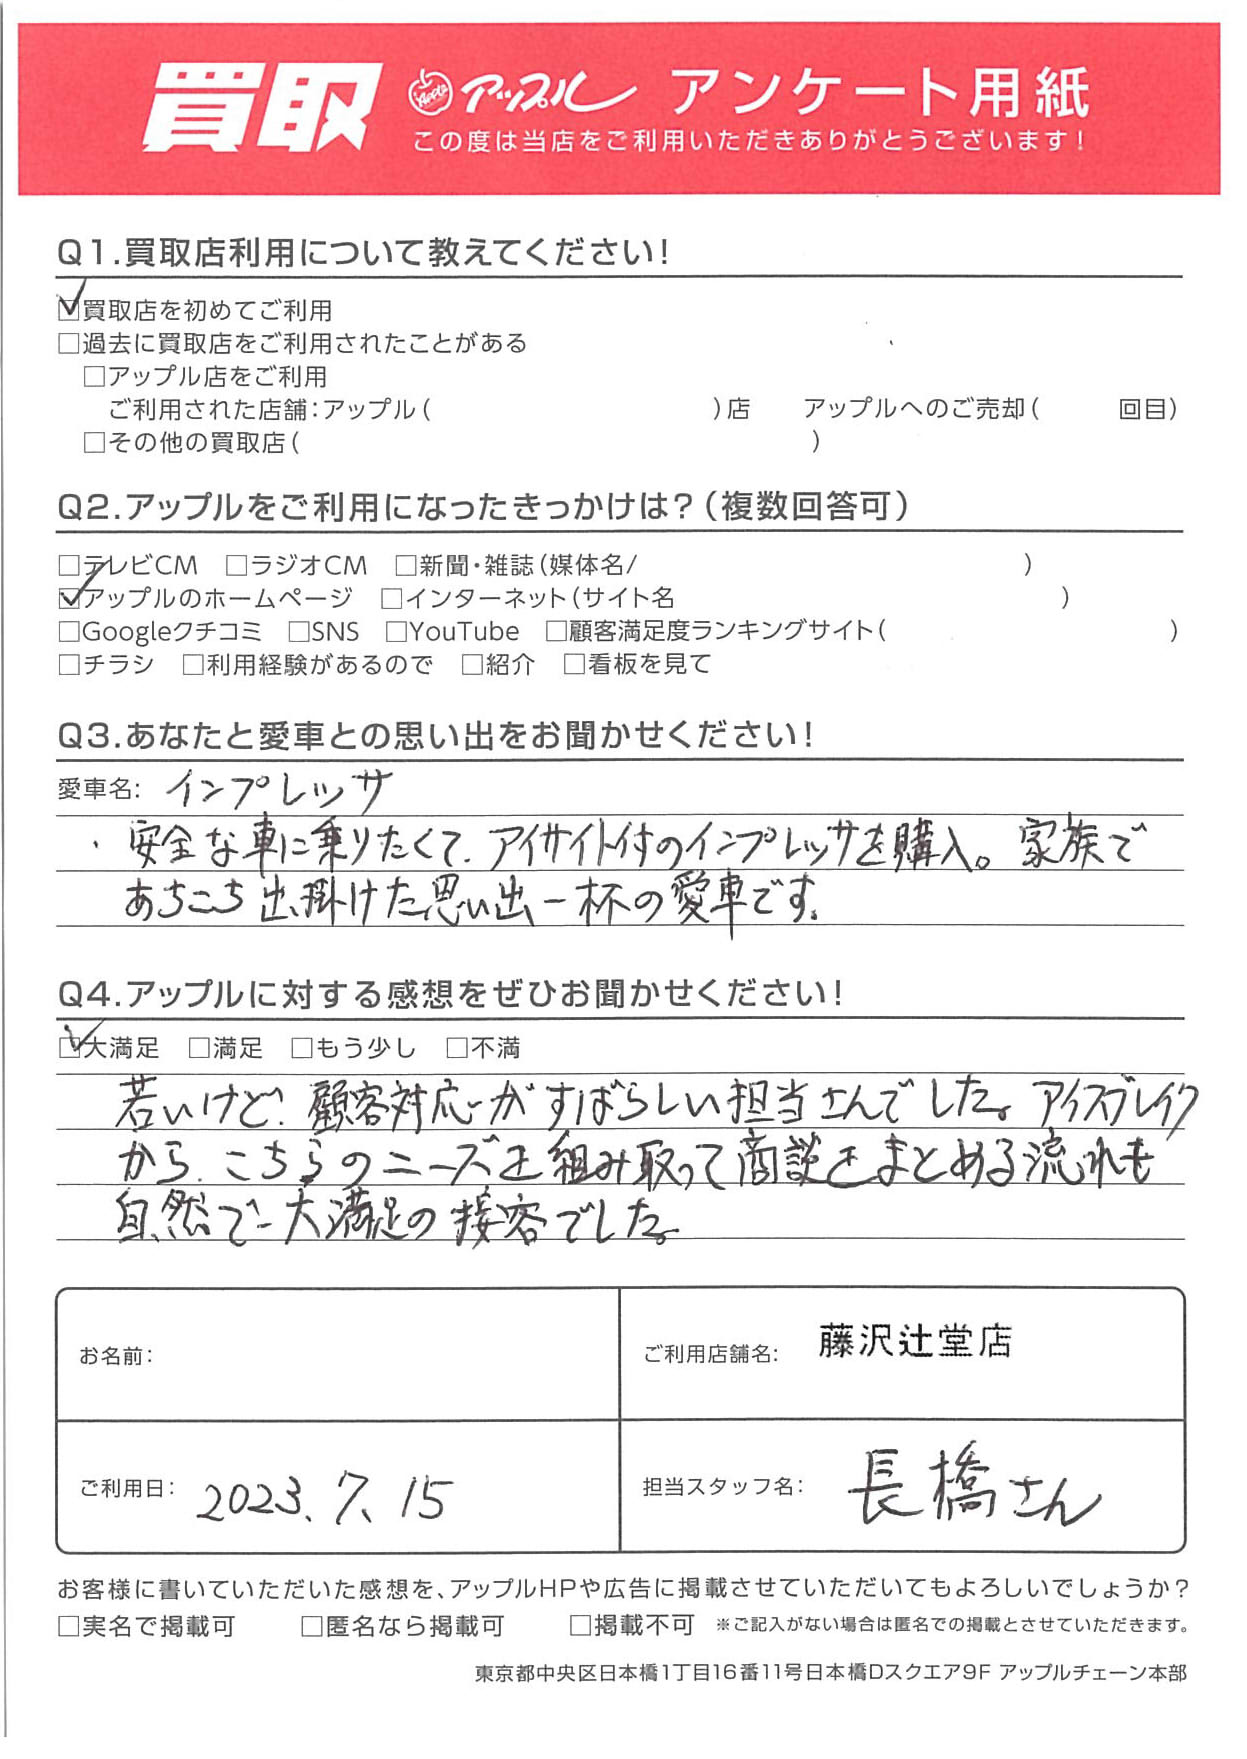 買取 Apple アップル アンケート用紙
この度は当店をご利用いただきありがとうございます!
Q1.買取店利用について教えてください!
☑買取店を初めてご利用
□過去に買取店をご利用されたことがある
□アップル店をご利用
ご利用された店舗:アップル( )店 アップルへのご売却( 回目)
□その他の買取店( )
Q2.アップルをご利用になったきっかけは?(複数回答可)
□テレビCM □ラジオCM □新聞・雑誌(媒体名/ )
☑アップルのホームページ □インターネット(サイト名 )
□Googleクチコミ □SNS □YouTube □顧客満足度ランキングサイト( )
□チラシ □利用経験があるので □紹介 □看板を見て
Q3.あなたと愛車との思い出をお聞かせください!
愛車名: インプレッサ
・安全な車に乗りたくて、アイサイト付のインプレッサを購入。家族で
あちこち出掛けた思い出一杯の愛車です。
Q4.アップルに対する感想をぜひお聞かせください!
☑大満足 □満足 □もう少し □不満
若いけど、顧客対応がすばらしい担当さんでした。アイスブレイク
から、こちらのニーズを組み取って商談をまとめる流れも
自然で、大満足の接客でした。
お名前:
ご利用店舗名: 藤沢辻堂店
ご利用日: 2023.7.15
担当スタッフ名: 長橋さん
お客様に書いていただいた感想を、アップルHPや広告に掲載させていただいてもよろしいでしょうか?
□実名で掲載可 □匿名なら掲載可 □掲載不可 ※ご記入がない場合は匿名での掲載とさせていただきます。
東京都中央区日本橋1丁目16番11号日本橋Dスクエア9F アップルチェーン本部